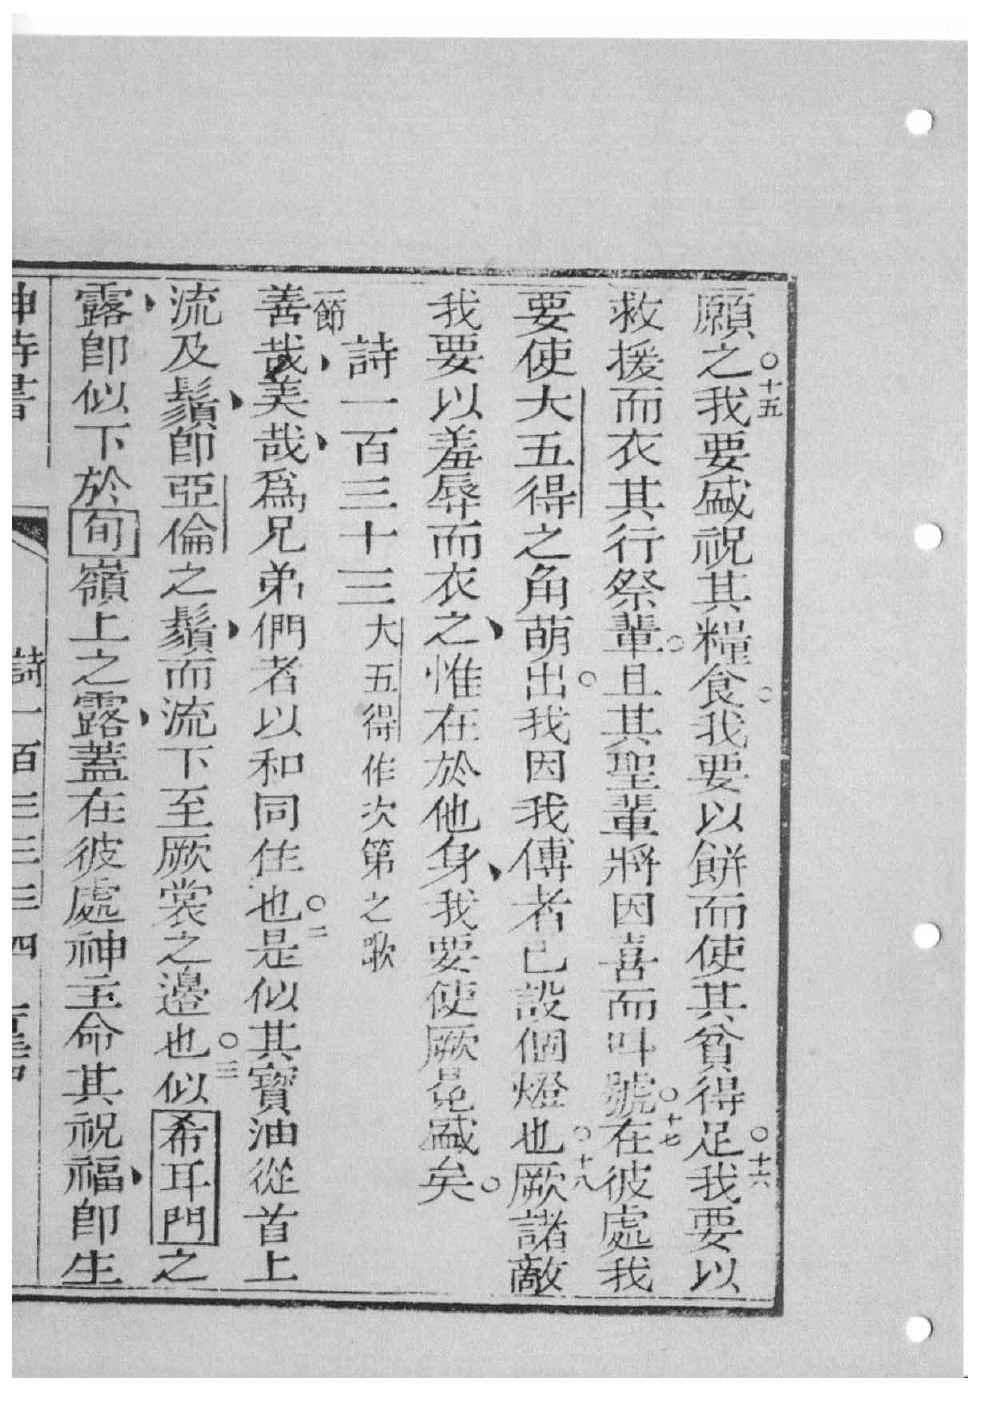 願之○十五我要盛祝其糧食○我要以餅而使其貧得足○十六我要以
救援而衣其行祭輩○且其聖輩將因喜而叫號○十七在彼處我
要使大五得之角萌出○我因我傅者已設個燈也○十八厥諸敵
我要以羞辱而衣之、惟在於他身、我要使厥冕盛矣○
詩一百三十三 大五得作次第之歌
一節善哉、美哉、為兄弟們者以和同住也○二是似其寶油從首上
流及鬚、即亞倫之鬚、而流下至厥裳之邊也○三似希耳門之
露、即似下於旬嶺上之露、蓋在彼處神主命其祝福、即生
神詩書 詩一百三三三四